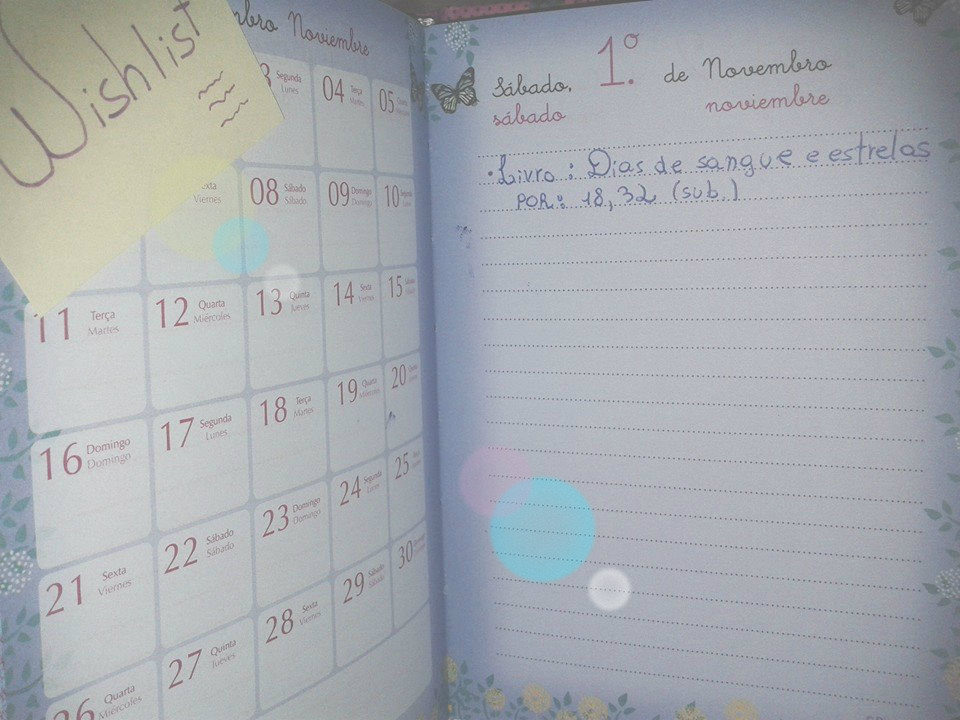 Wishlist
Novembro Noviembre
3 Segunda Lunes
04 Terça Martes
05
Viernes
08 Sábado Sábado
09 Domingo Domingo
10 Segunda
11 Terça Martes
12 Quarta Miércoles
13 Quinta Jueves
14 Sexta Viernes
15 Sábado
16 Domingo Domingo
17 Segunda Lunes
18 Terça Martes
19 Quarta Miércoles
20
21 Sexta Viernes
22 Sábado Sábado
23 Domingo Domingo
24 Segunda Lunes
25
26 Quarta Miércoles
27 Quinta Jueves
28 Sexta Viernes
29 Sábado Sábado
30
Sábado, 1º. de Novembro
sábado noviembre
• Livro: Dias de sangue e estrelas
POR: 18,32 (sub.)